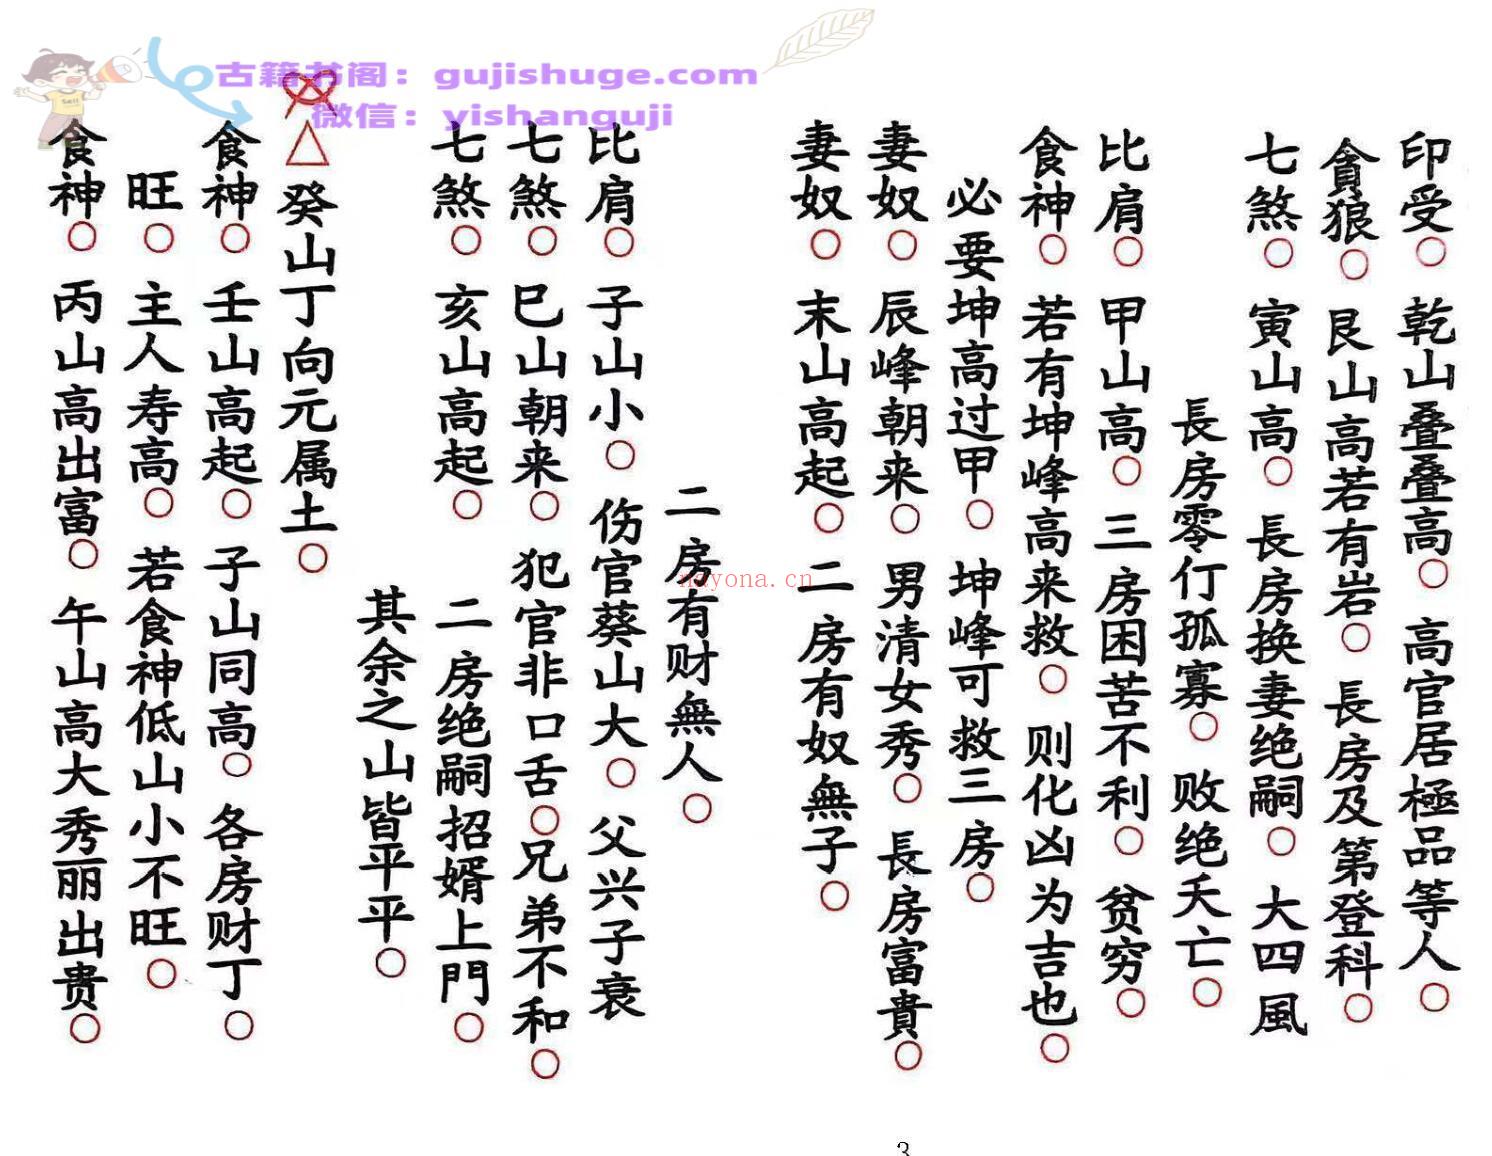 古籍书阁：gujishuge.com
微信：yishanguji
印受○乾山叠叠高○高官居極品等人○
貪狼○艮山高若有岩○長房及第登科○
七煞○寅山高○長房换妻绝嗣○大四風
長房零仃孤寡○败绝夭亡○
比肩○甲山高○三房困苦不利○贫穷○
食神○若有坤峰高来救○则化凶为吉也○
必要坤高过甲○坤峰可救三房○
妻奴○辰峰朝来○男清女秀○長房富貴○
妻奴○末山高起○二房有奴無子○
二房有财無人○
比肩○子山小○伤官葵山大○父兴子衰
七煞○巳山朝来○犯官非口舌○兄弟不和○
七煞○亥山高起○二房绝嗣招婿上門○
其余之山皆平平○
△癸山丁向元属土○
食神○壬山高起○子山同高○各房财丁○
旺○主人寿高○若食神低山小不旺○
食神○丙山高出富○午山高大秀丽出贵○
nayona.cn
3